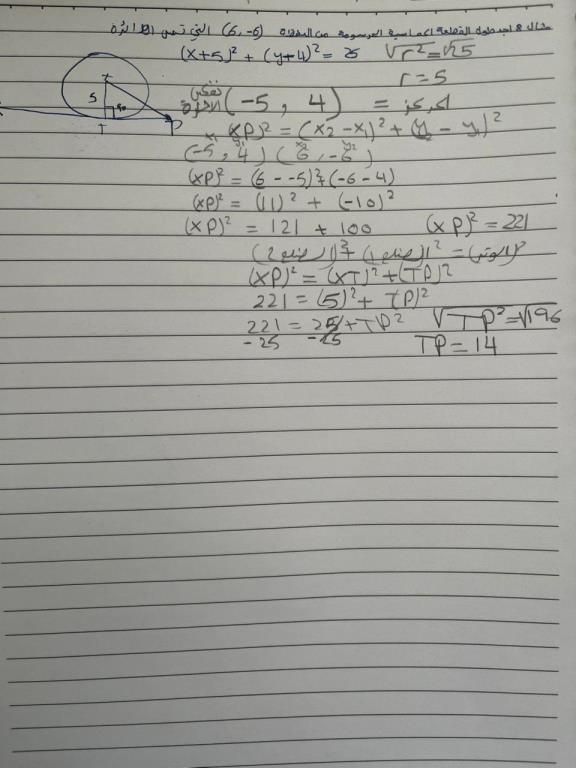 مثال 8 اجد طول القطعة المماسية المرسومة من النقطة (6, -6) التي تمس الدائرة
(x+5)² + (y+4)² = 25 √r² = √25
r = 5
المركز = (-5 , 4)
(XP)² = (x₂ - x₁)² + (y₂ - y₁)²
x₁ y₁ x₂ y₂
(-5, 4) (6, -6)
(XP)² = (6 - -5)² + (-6 - 4)
(XP)² = (11)² + (-10)²
(XP)² = 121 + 100 (XP)² = 221
(الوتر)² = (الضلع 1)² + (الضلع 2)²
(XP)² = (XT)² + (TP)²
221 = (5)² + TP)²
221 = 25 + TP² √TP² = √196
-25 -25 TP = 14
5
90
T
P